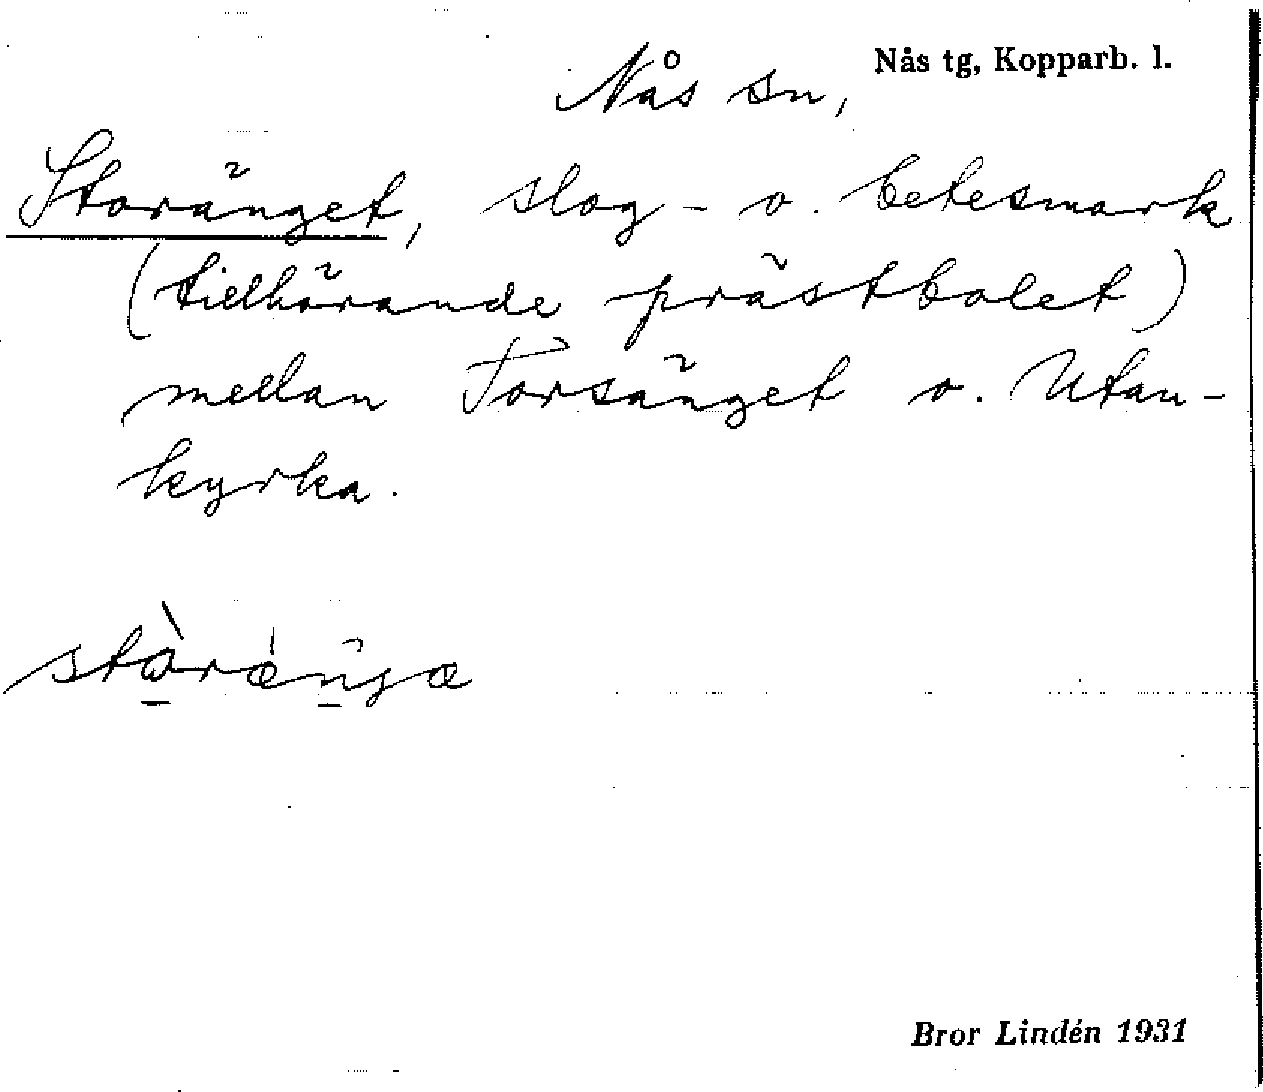 Nås tg, Kopparb. l.
Nås sn,
Storänget, slog- o. betesmark
(tillhörande prästbolet)
mellan Torsänget o. Utan-
kyrka.
Bror Lindén 1931